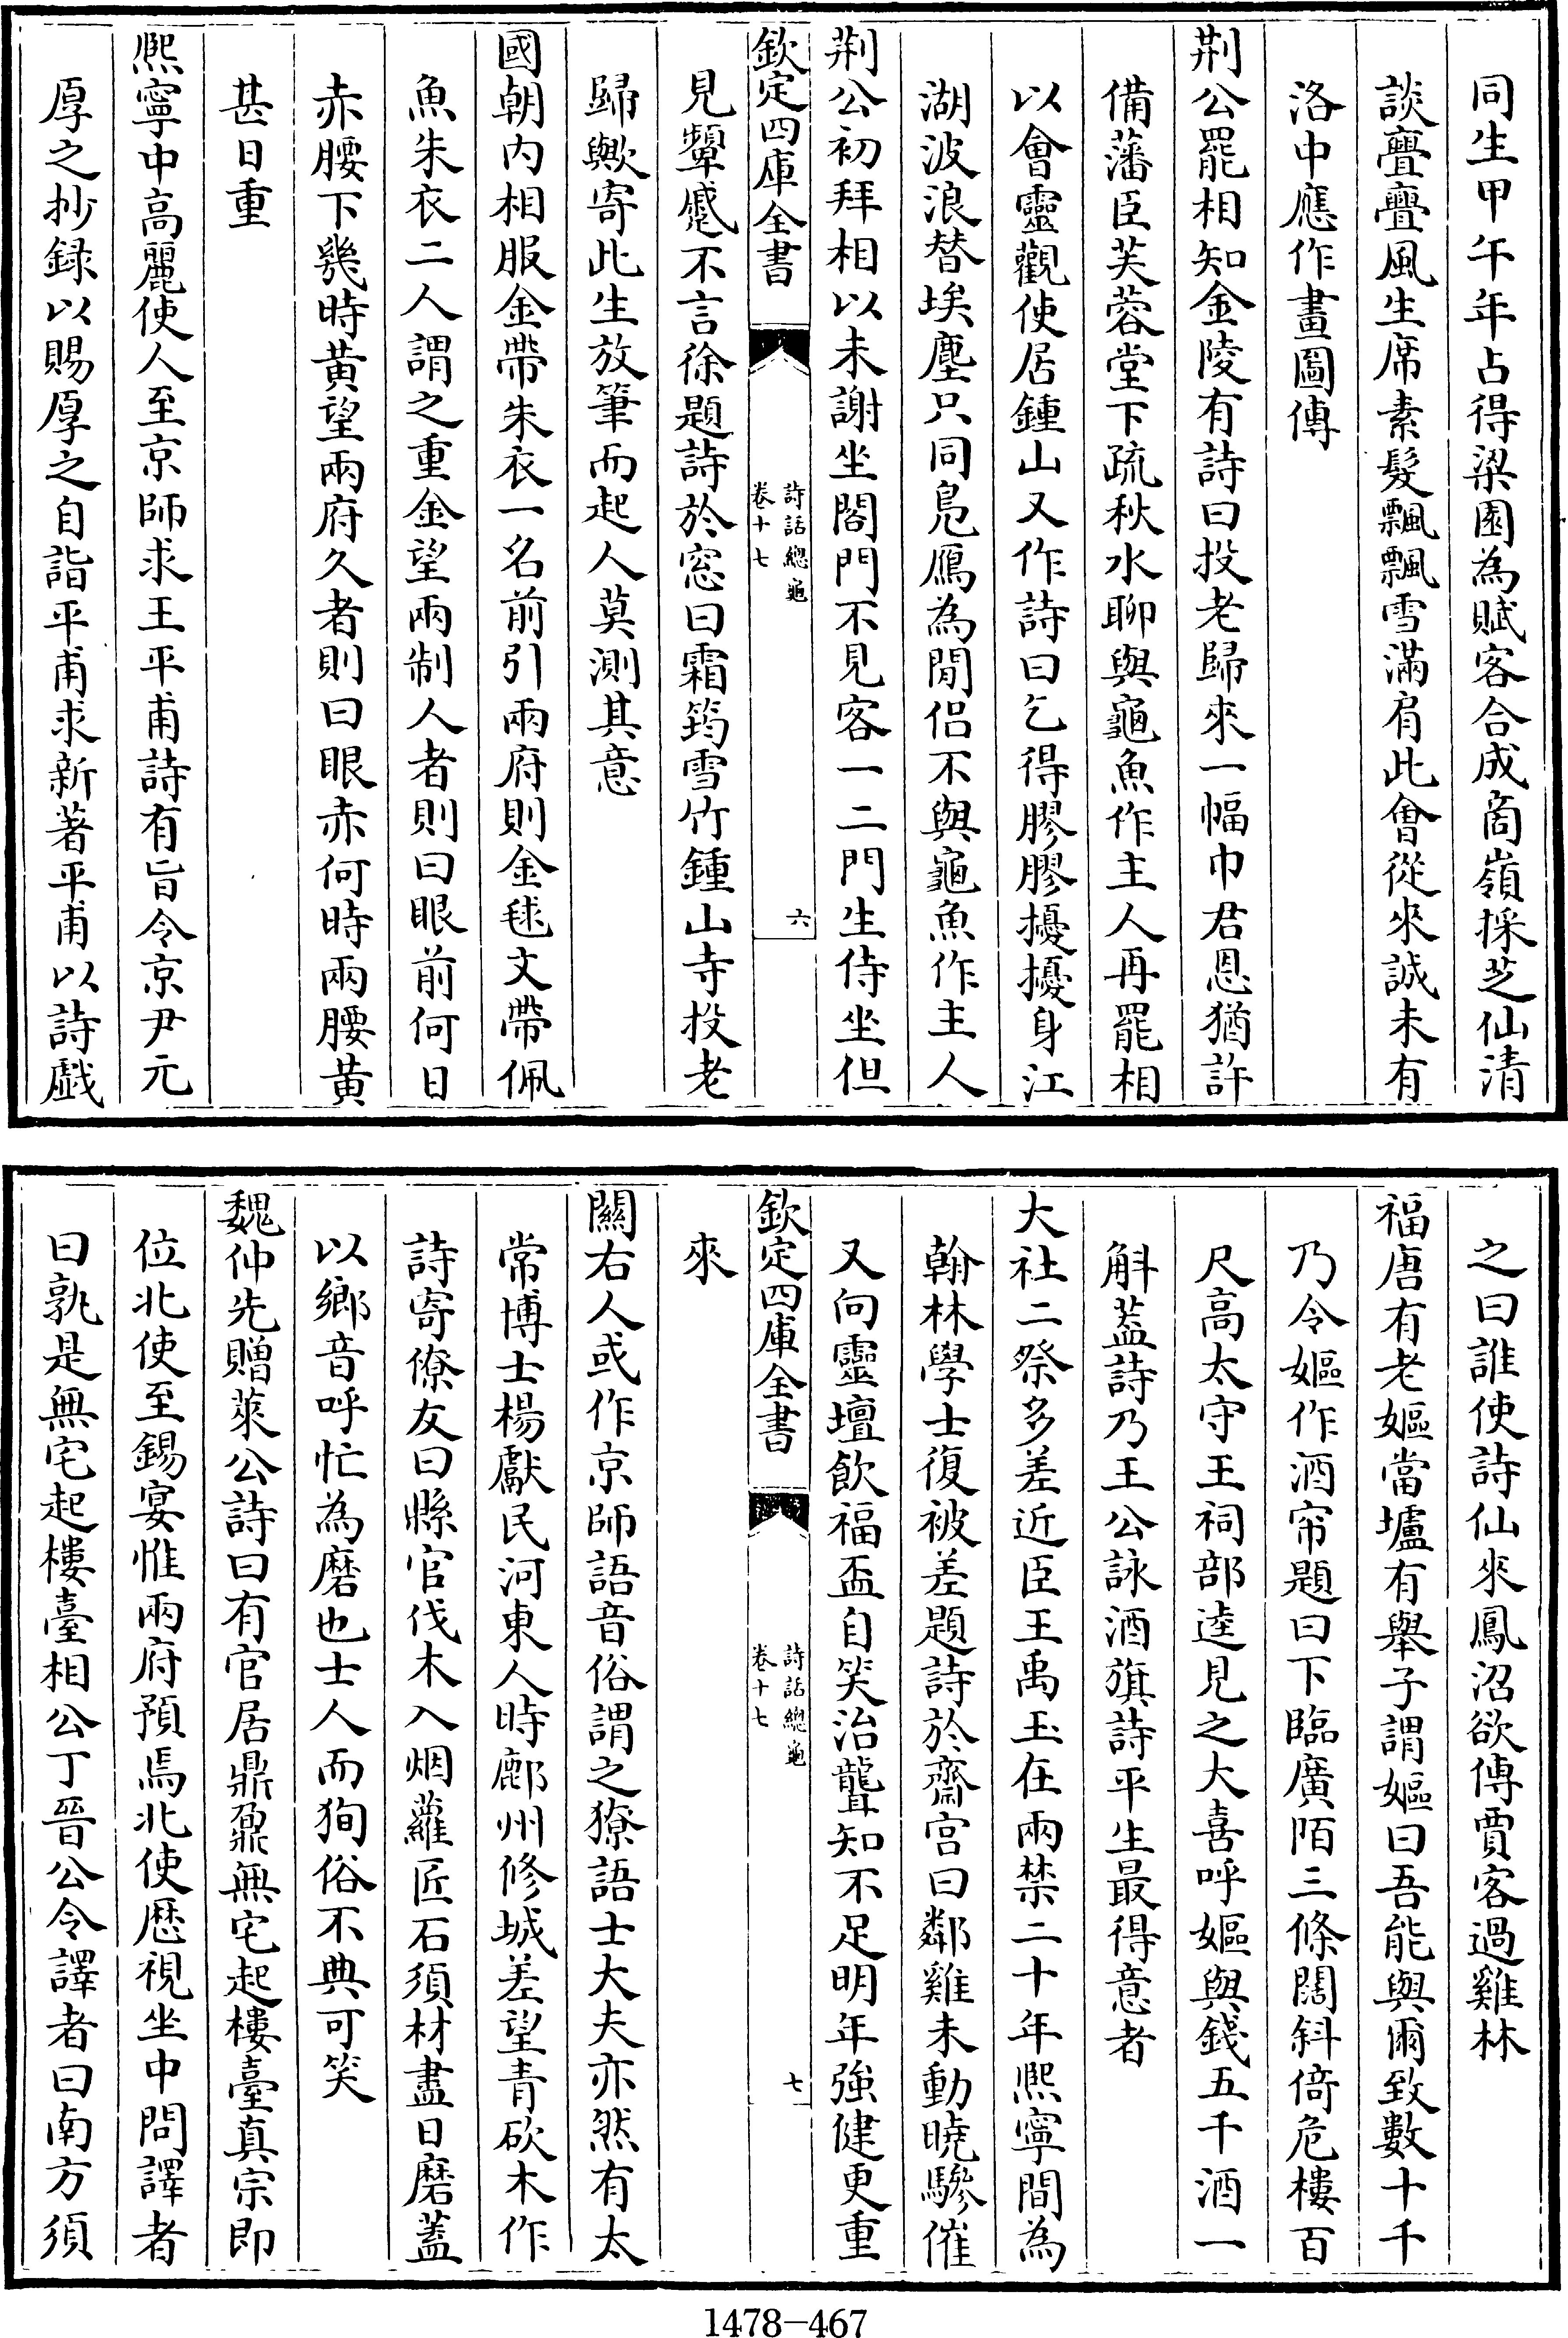 同生甲午年占得梁園為賦客合成啇嶺採芝仙清
談亹亹風生席素髮飄飄雪滿肩此會從來誠未有
洛中應作畫圖傳
荆公罷相知金陵有詩曰投老歸來一幅巾君恩猶許
備藩臣芙蓉堂下疏秋水聊與龜魚作主人再罷相
以會靈觀使居鍾山又作詩曰乞得膠膠擾擾身江
湖波浪替埃塵只同鳬鴈為閒侣不與龜魚作主人
荆公初拜相以未謝坐閤門不見客一二門生侍坐但
欽定四庫全書
詩話總龜
卷十七
六
見顰蹙不言徐題詩於窓曰霜筠雪竹鍾山寺投老
歸歟寄此生放筆而起人莫測其意
國朝内相服金帶朱衣一名前引兩府則金毬文帶佩
魚朱衣二人謂之重金望兩制人者則曰眼前何日
赤腰下幾時黄望兩府久者則曰眼赤何時兩腰黄
甚日重
熈寧中高麗使人至京師求王平甫詩有旨令京尹元
厚之抄録以賜厚之自詣平甫求新著平甫以詩戲
之曰誰使詩仙來鳳沼欲傳賈客過雞林
福唐有老嫗當壚有舉子謂嫗曰吾能與爾致數十千
乃令嫗作酒帘題曰下臨廣陌三條闊斜倚危樓百
尺高太守王祠部逵見之大喜呼嫗與錢五千酒一
斛葢詩乃王公詠酒旗詩平生最得意者
大社二祭多差近臣王禹玉在兩禁二十年熈寧間為
翰林學士復被差題詩於齋宫曰鄰雞未動曉驂催
又向靈壇飲福盃自笑治聾知不足明年強健更重
欽定四庫全書
詩話總龜
卷十七
七
來
關右人或作京師語音俗謂之獠語士大夫亦然有太
常博士楊獻民河東人時鄜州修城差望青砍木作
詩寄僚友曰縣官伐木入烟蘿匠石須材盡日磨蓋
以鄉音呼忙為磨也士人而狥俗不典可笑
魏仲先贈萊公詩曰有官居鼎鼐無宅起樓臺真宗即
位北使至錫宴惟兩府預焉北使歴視坐中問譯者
曰孰是無宅起樓臺相公丁晉公令譯者曰南方須
1478-467